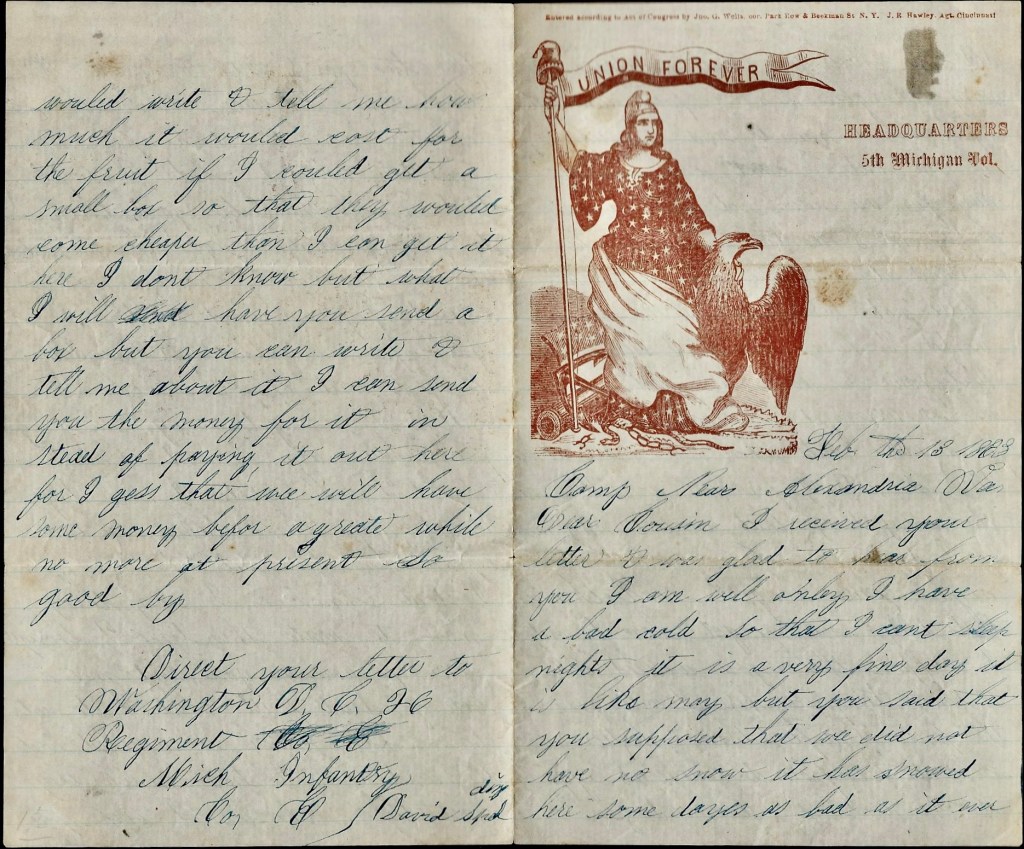 would write & tell me how
much it would cost for
the fruit if I could get a
small box so that they would
come cheaper than I can get it
here I dont know but what
I will send have you send a
box but you can write &
tell me about it I can send
you the money for it in
stead of paying it out here
for I gess that wee will have
some money befor a greate while
no more at present So
good by
Direct your letter to
Washington D, C, 26
Regiment Co, E
Mich Infantry
Co, E David
Entered according to Act of Congress by Jno. G. Wells, cor. Park Row & Beekman St N. Y. J. R. Hawley, Agt. Cincinnati
UNION FOREVER
HEADQUARTERS
5th Michigan Vol.
Feb the 13 1863
Camp Near Alexandria Va
Dear Cousin I received your
letter & was glad to hear from
you I am well only I have
a bad cold so that I cant sleep
nights it is a very fine day it
is like may but you said that
you supposed that wee did not
have no snow it has snowed
here some dayes as bad as it ever